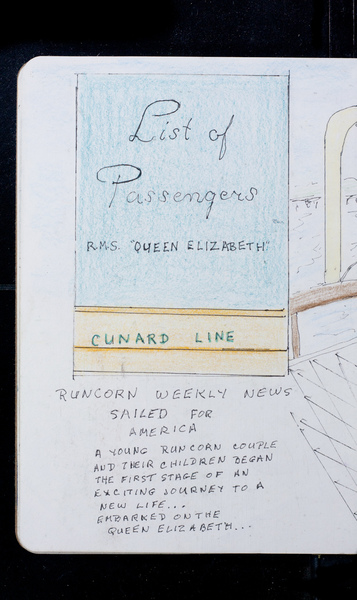 List of
Passengers
R.M.S. "QUEEN ELIZABETH"
CUNARD LINE
RUNCORN WEEKLY NEWS
SAILED FOR
AMERICA
A YOUNG RUNCORN COUPLE
AND THEIR CHILDREN BEGAN
THE FIRST STAGE OF AN
EXCITING JOURNEY TO A
NEW LIFE...
EMBARKED ON THE
QUEEN ELIZABETH...